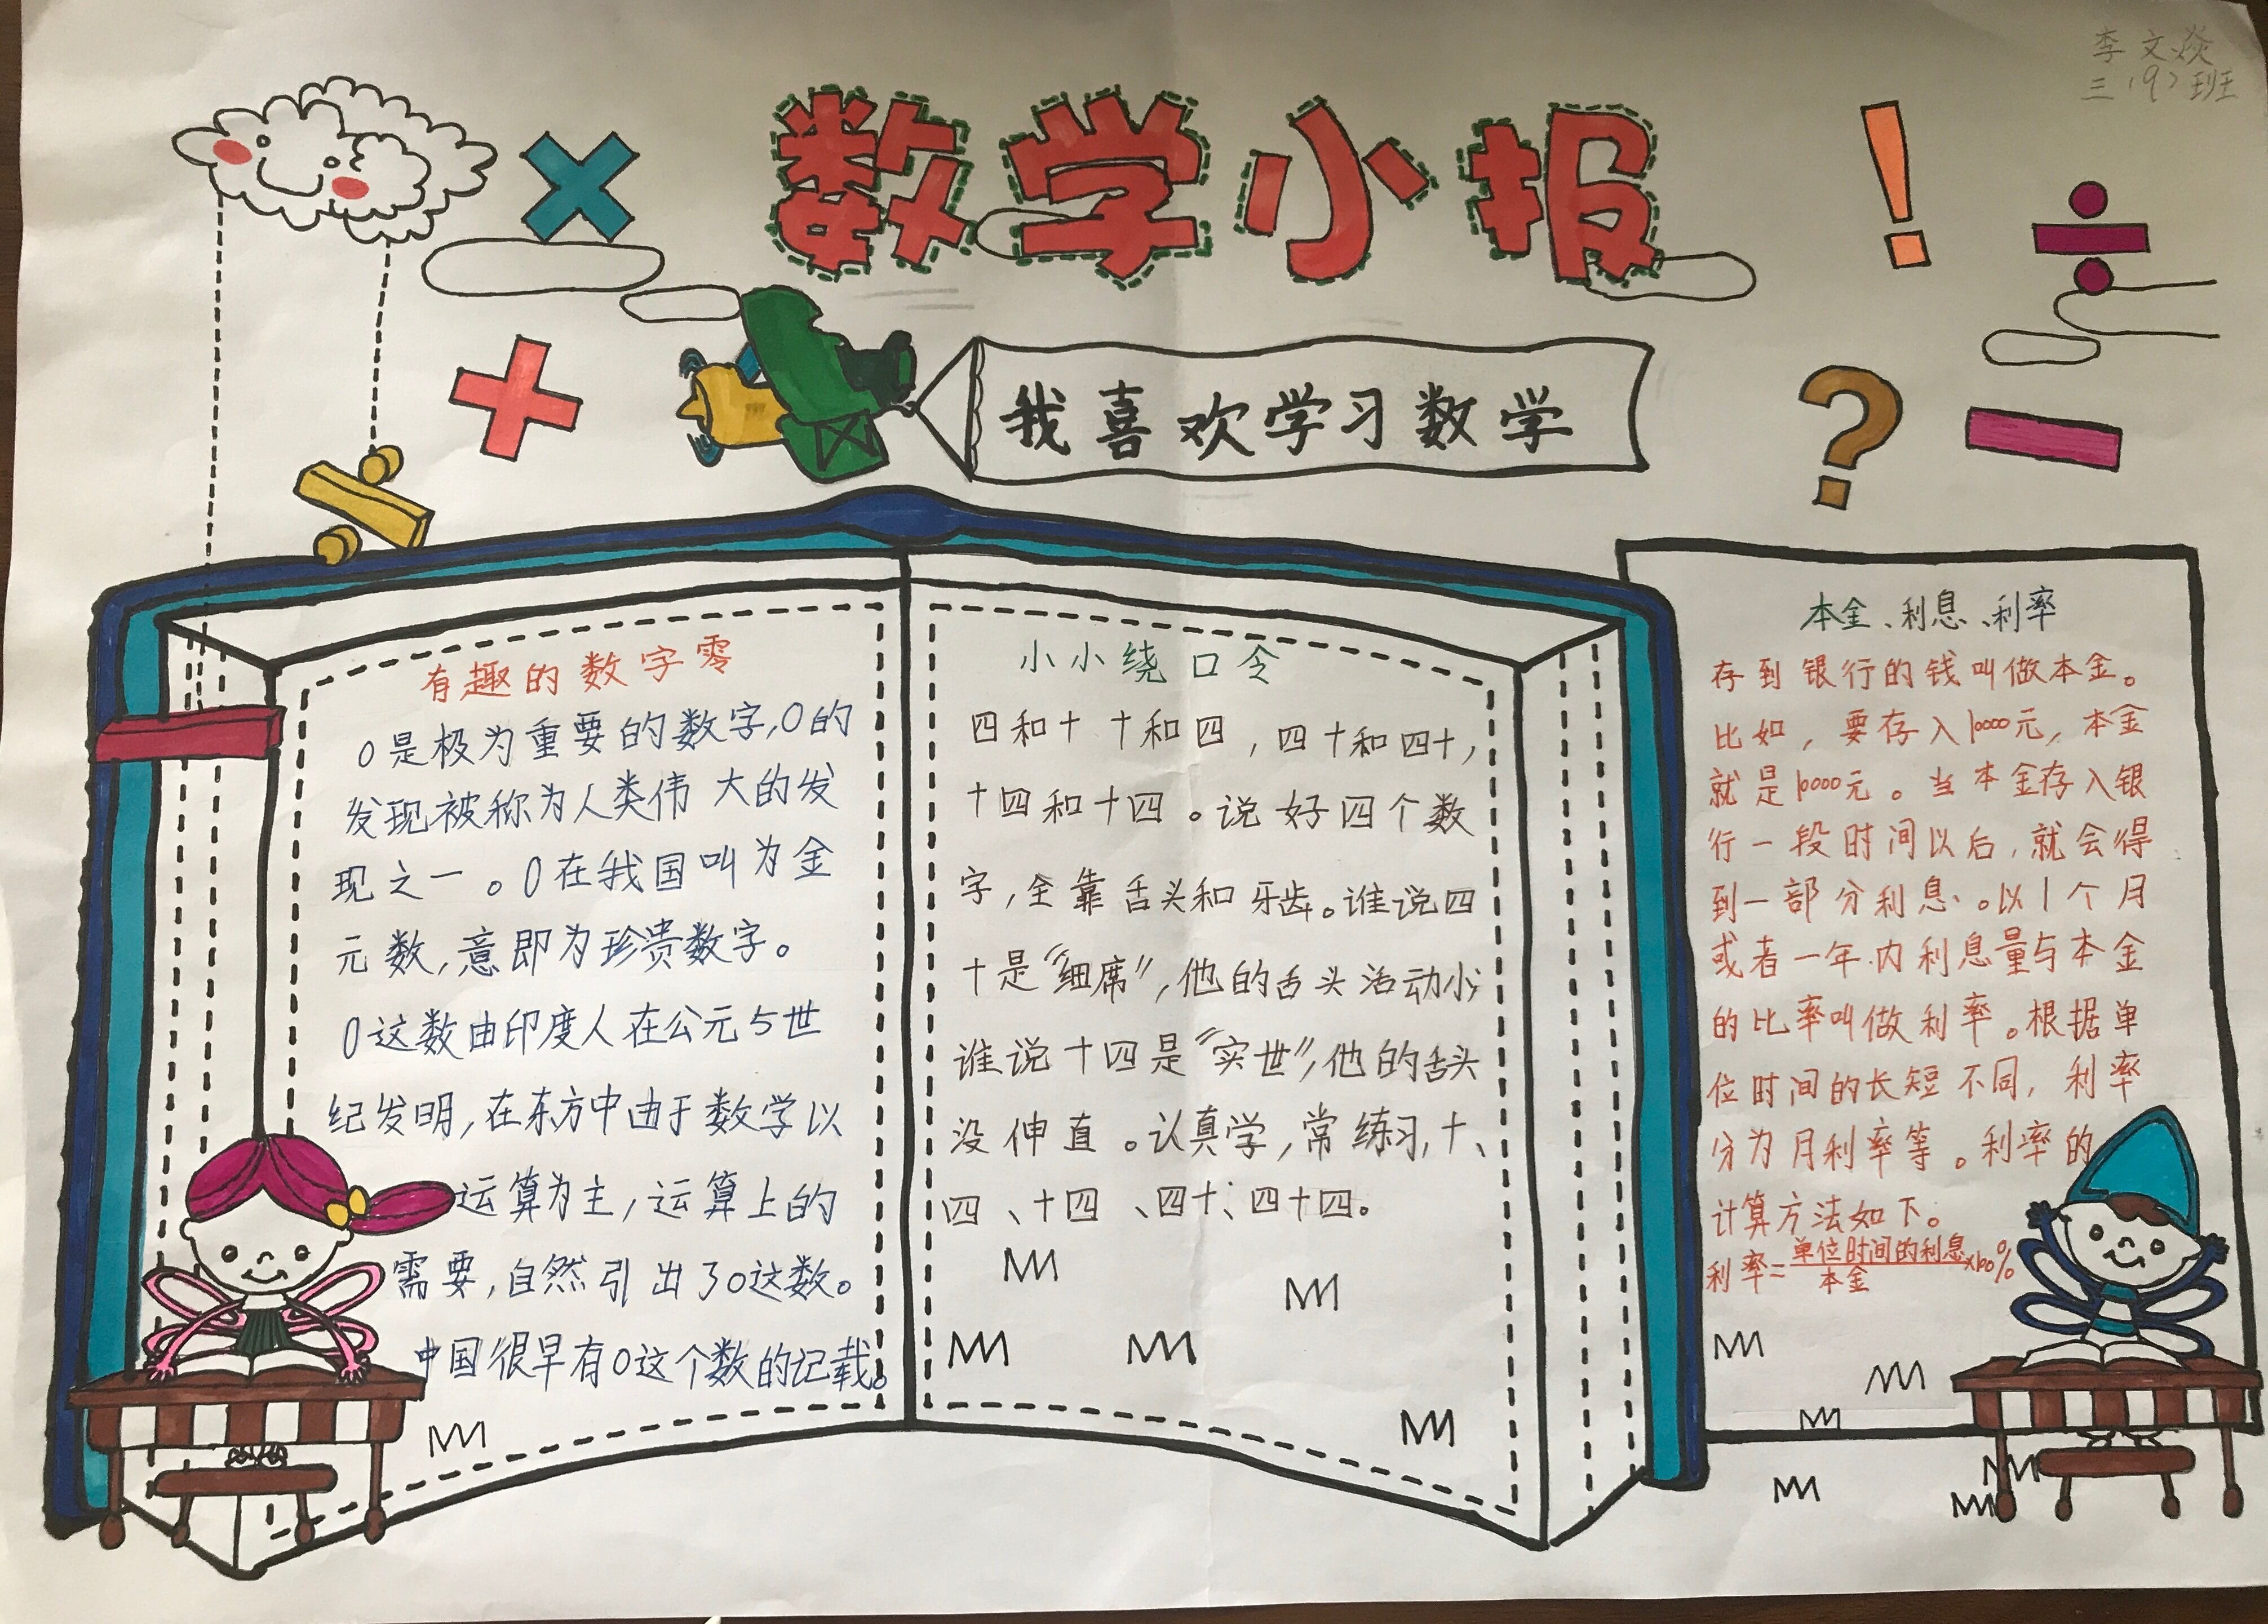 李文焱
三(9)班
数学小报
我喜欢学习数学
有趣的数字零
0是极为重要的数字,0的
发现被称为人类伟大的发
现之一。0在我国叫为金
元数,意即为珍贵数字。
0这数由印度人在公元5世
纪发明,在东方中由于数学以
运算为主,运算上的
需要,自然引出了0这数。
中国很早有0这个数的记载。
小小绕口令
四和十 十和四,四十和四十,
十四和十四。说好四个数
字,全靠舌头和牙齿。谁说四
十是“细席”,他的舌头活动少;
谁说十四是“实世”,他的舌头
没伸直。认真学,常练习,十、
四、十四、四十、四十四。
本金、利息、利率
存到银行的钱叫做本金。
比如,要存入10000元,本金
就是10000元。当本金存入银
行一段时间以后,就会得
到一部分利息。以1个月
或者一年内利息量与本金
的比率叫做利率。根据单
位时间的长短不同,利率
分为月利率等。利率的
计算方法如下。
利率=单位时间的利息/本金×100%